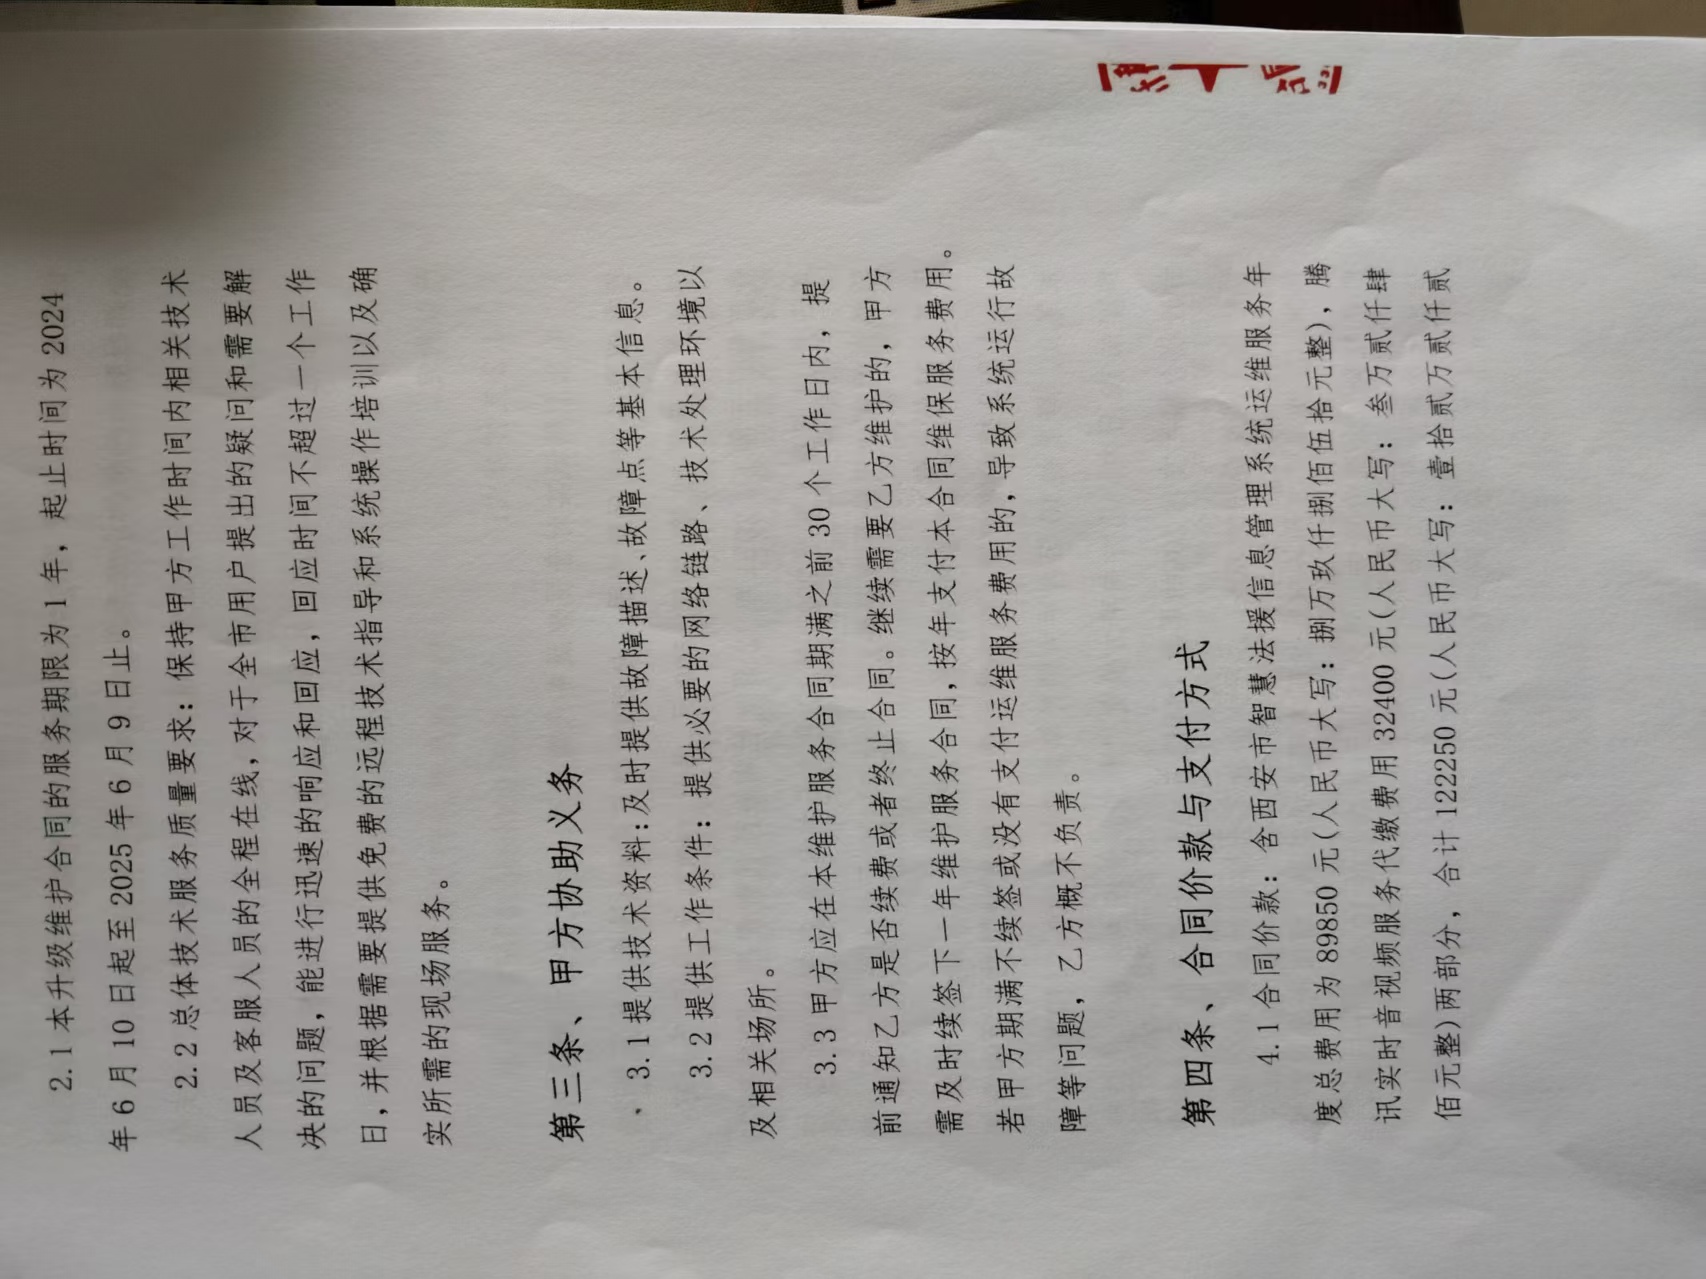 2.1 本升级维护合同的服务期限为 1 年，起止时间为 2024
年 6 月 10 日起至 2025 年 6 月 9 日止。
2.2 总体技术服务质量要求：保持甲方工作时间内相关技术
人员及客服人员的全程在线，对于全市用户提出的疑问和需要解
决的问题，能进行迅速的响应和回应，回应时间不超过一个工作
日，并根据需要提供免费的远程技术指导和系统操作培训以及确
实所需的现场服务。
第三条、甲方协助义务
3.1 提供技术资料：及时提供故障描述、故障点等基本信息。
3.2 提供工作条件：提供必要的网络链路、技术处理环境以
及相关场所。
3.3 甲方应在本维护服务合同期满之前 30 个工作日内，提
前通知乙方是否续费或者终止合同。继续需要乙方维护的，甲方
需及时续签下一年维护服务合同，按年支付本合同维保服务费用。
若甲方期满不续签或没有支付运维服务费用的，导致系统运行故
障等问题，乙方概不负责。
第四条、合同价款与支付方式
4.1 合同价款：含西安市智慧法援信息管理系统运维服务年
度总费用为 89850 元（人民币大写：捌万玖仟捌佰伍拾元整），腾
讯实时音视频服务代缴费用 32400 元（人民币大写：叁万贰仟肆
佰元整）两部分，合计 122250 元（人民币大写：壹拾贰万贰仟贰